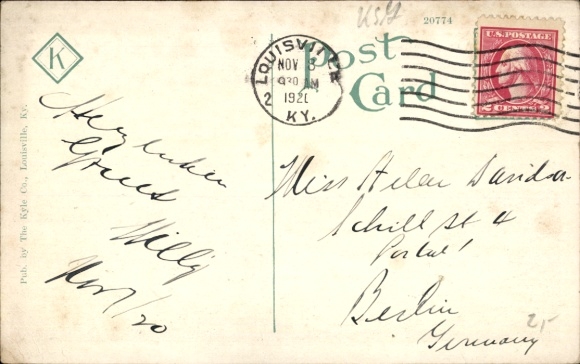 K
Pub. by The Kyle Co., Louisville, Ky.
20774
Post
Card
LOUISVILLE
NOV 3
930 AM
1920
2
KY.
U.S. POSTAGE
2 CENTS 2
Herzlichen
Gruss
Willy
Nov / 20
Miss Helen Davidson
Schill St 4
Portal 1
Berlin
Germany
2,-